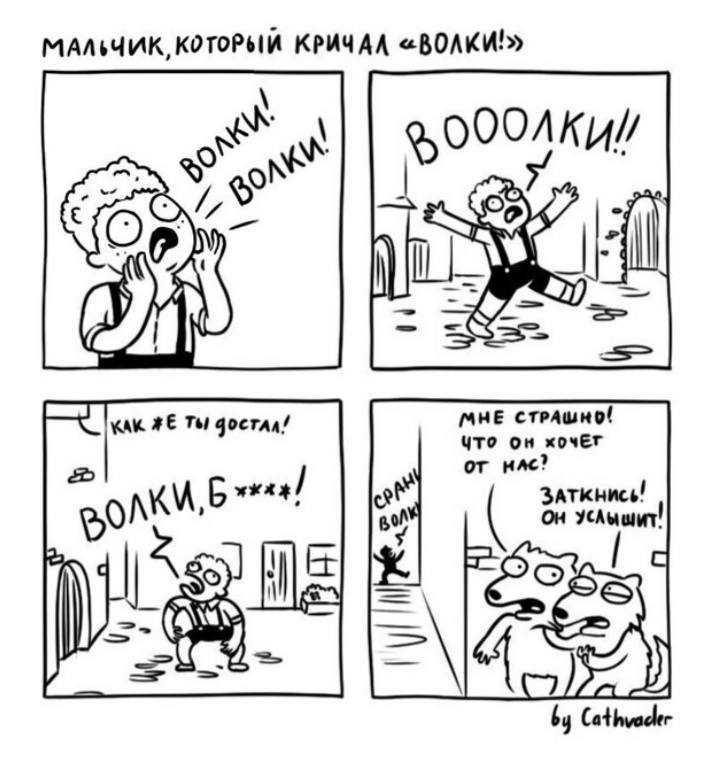 МАЛЬЧИК, КОТОРЫЙ КРИЧАЛ «ВОЛКИ!»
ВОЛКИ!
ВОЛКИ!
ВОООЛКИ!!
КАК ЖЕ ТЫ ДОСТАЛ!
ВОЛКИ, Б****!
СРАНЫ
ВОЛК
МНЕ СТРАШНО!
ЧТО ОН ХОЧЕТ
ОТ НАС?
ЗАТКНИСЬ!
ОН УСЛЫШИТ!
by Cathvader